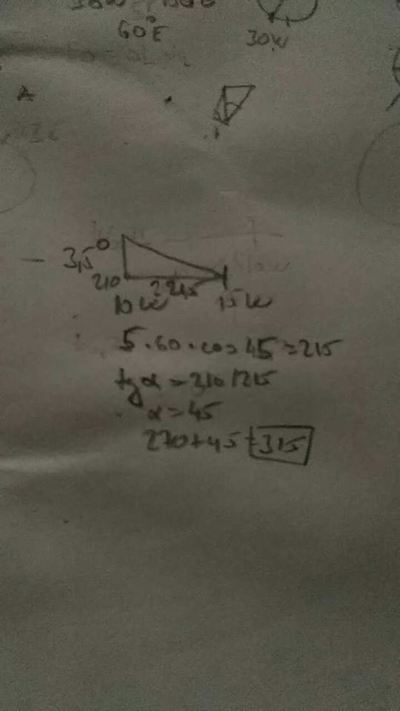 60°E
30W
A
3,5°
210
215
10W 15W
5.60.cos 45=215
tgα=210/215
α=45
270+45=315